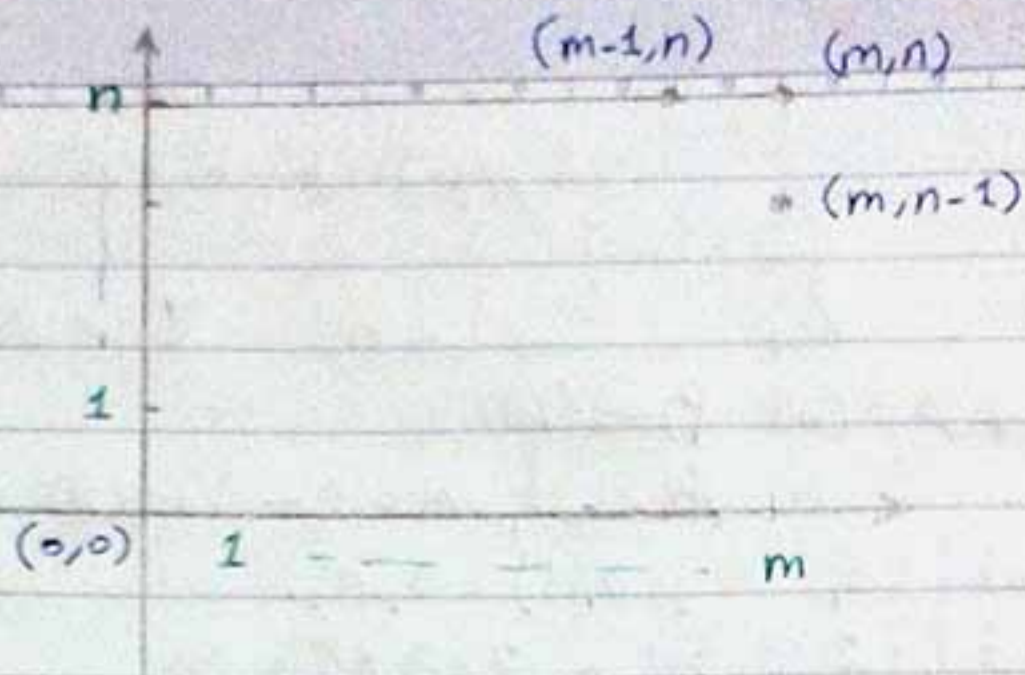 (m-1,n) (m,n)
n
(m,n-1)
1
(0,0) 1 m